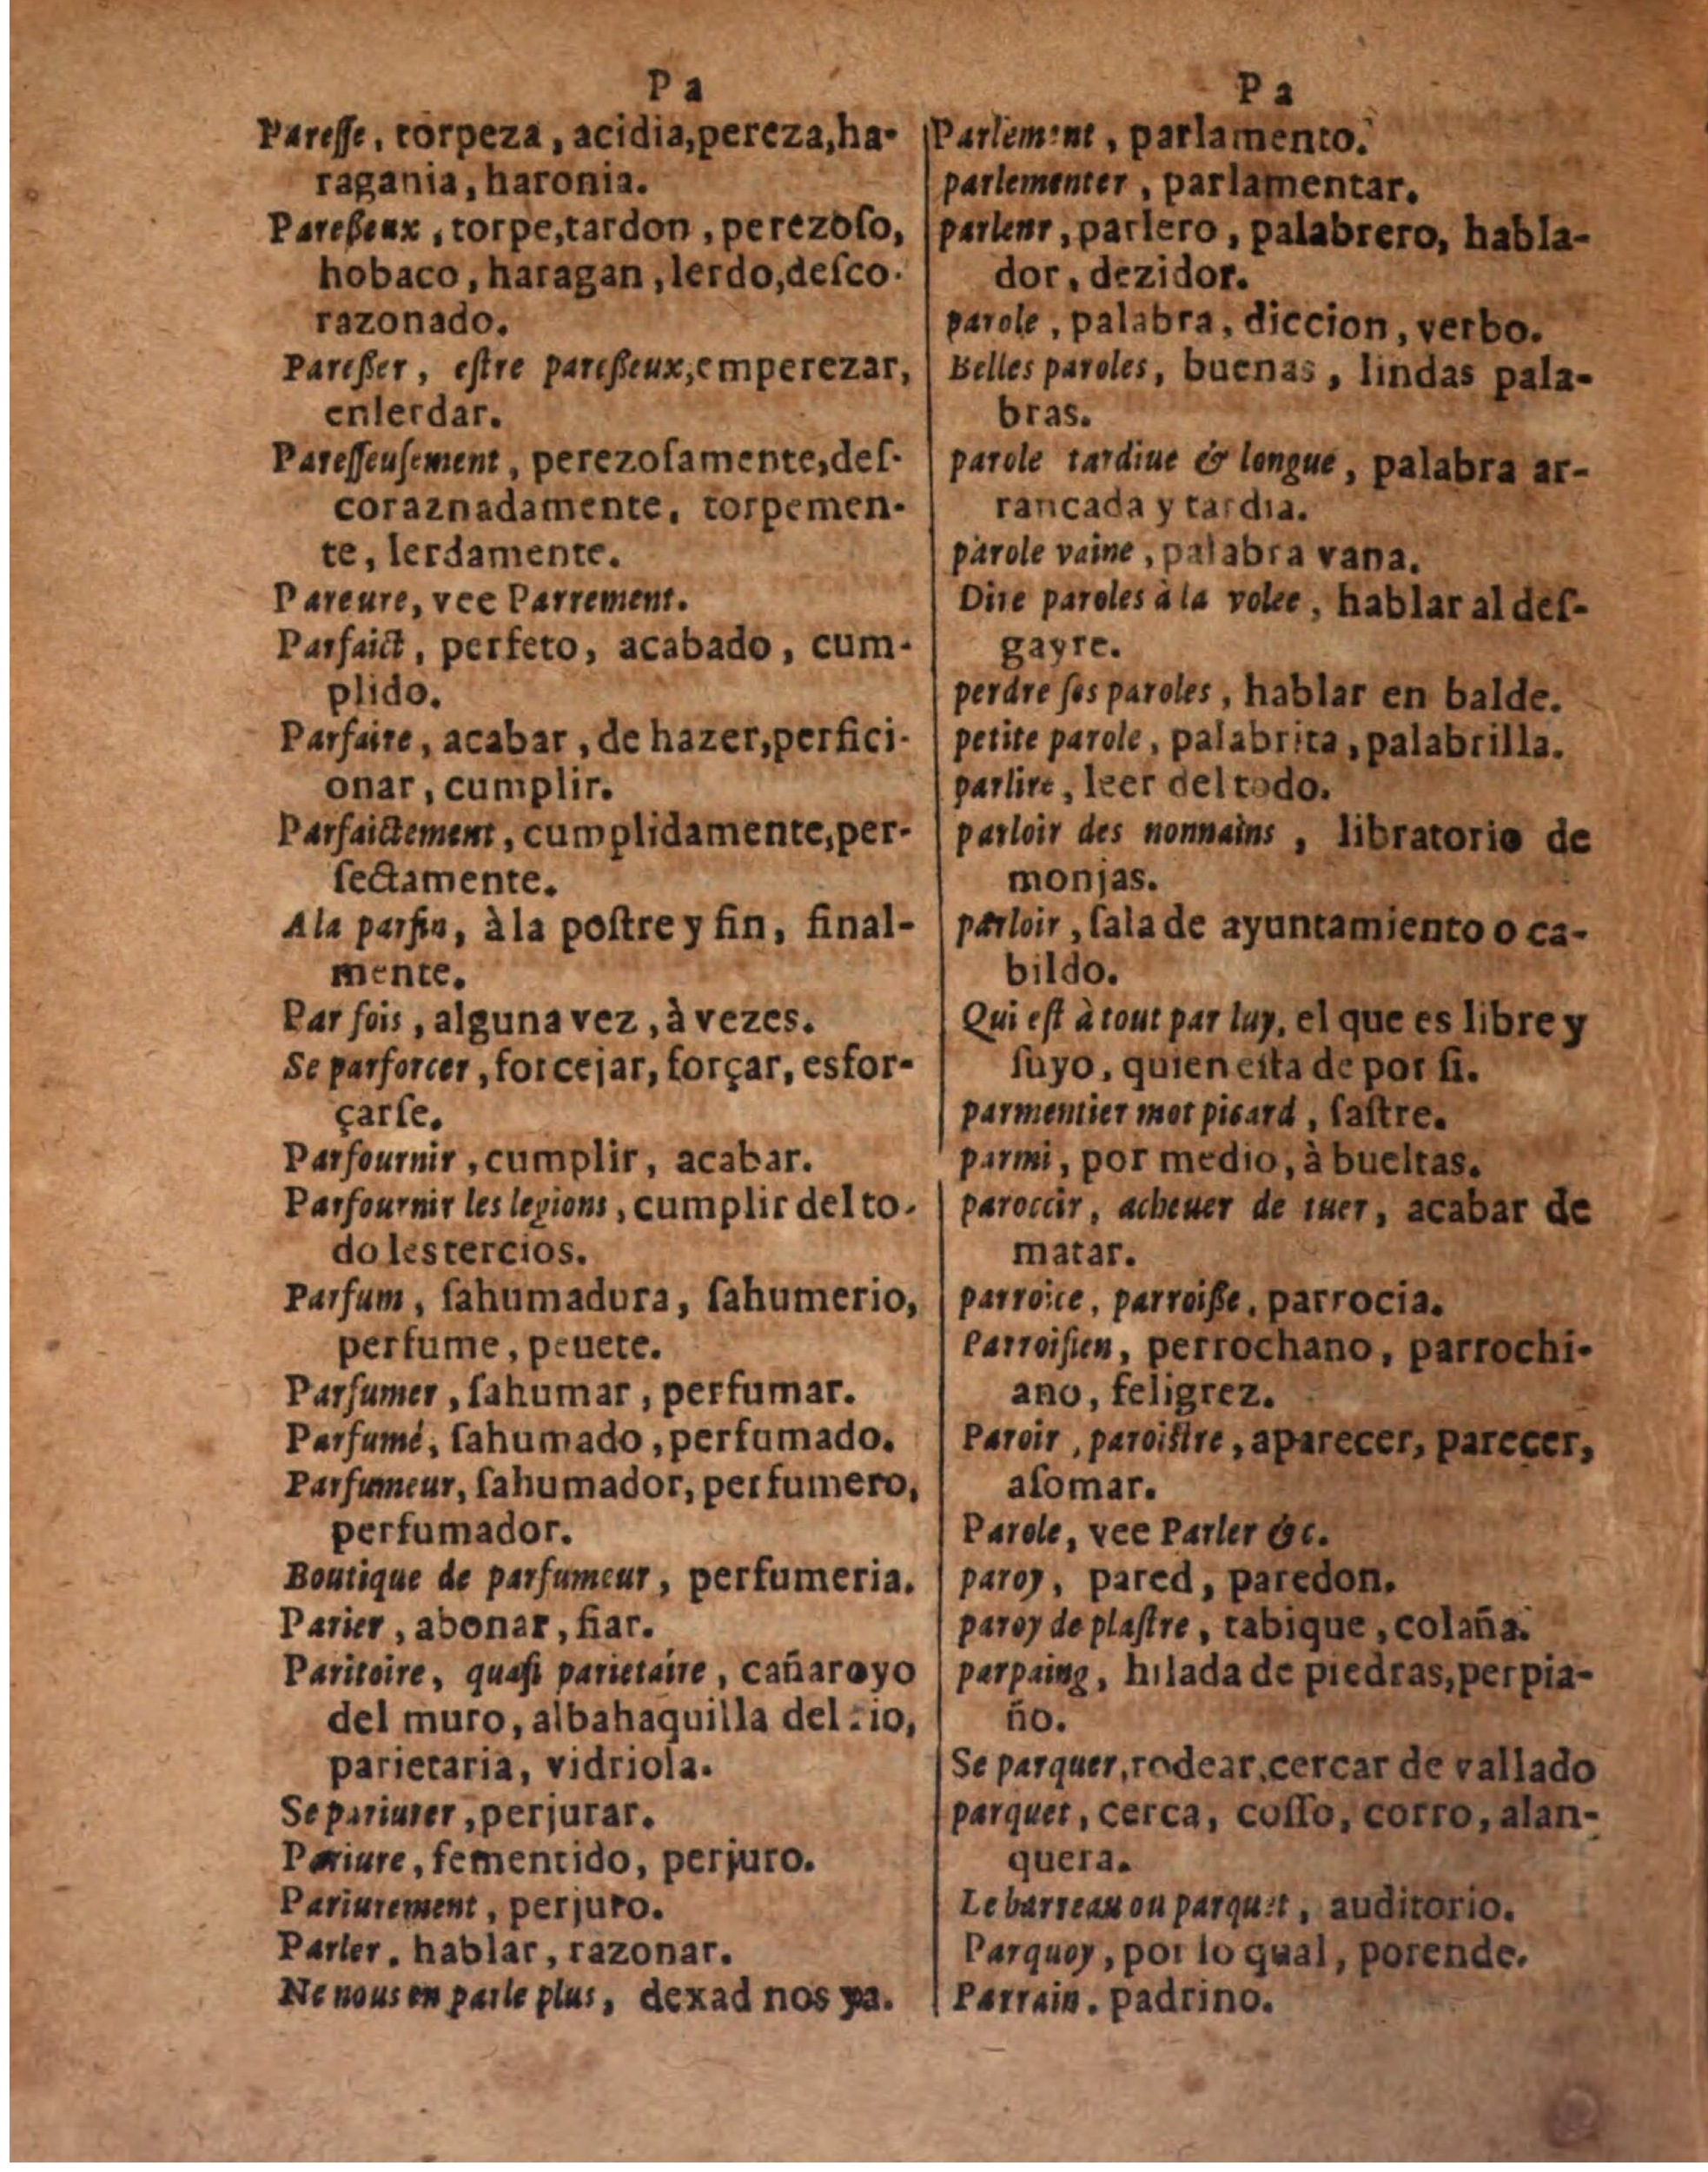 P a
Pareſſe, torpeza, acidia, pereza, ha-
ragania, haronia.
Pareßeux, torpe, tardon, perezoſo,
hobaco, haragan, lerdo, deſco-
razonado.
Pareßer, eſtre pareßeux, emperezar,
enlerdar.
Pareſſeuſement, perezoſamente, deſ-
coraznadamente, torpemen-
te, lerdamente.
Pareure, vee Parrement.
Parfaict, perfeto, acabado, cum-
plido.
Parfaire, acabar, de hazer, perfici-
onar, cumplir.
Parfaictement, cumplidamente, per-
fectamente.
A la parfin, à la poſtre y fin, final-
mente.
Par fois, alguna vez, à vezes.
Se parforcer, forcejar, forçar, esfor-
çarſe.
Parfournir, cumplir, acabar.
Parfournir les legions, cumplir del to-
do les tercios.
Parfum, ſahumadura, ſahumerio,
perfume, peuete.
Parfumer, ſahumar, perfumar.
Parfumé, ſahumado, perfumado.
Parfumeur, ſahumador, perfumero,
perfumador.
Boutique de parfumeur, perfumeria.
Parier, abonar, fiar.
Paritoire, quaſi parietaire, cañaroyo
del muro, albahaquilla del rio,
parietaria, vidriola.
Se pariurer, perjurar.
Pariure, fementido, perjuro.
Pariurement, perjuro.
Parler, hablar, razonar.
Ne nous en parle plus, dexad nos ya.
P a
Parlement, parlamento.
parlementer, parlamentar.
parleur, parlero, palabrero, habla-
dor, dezidor.
parole, palabra, diccion, verbo.
Belles paroles, buenas, lindas pala-
bras.
parole tardiue & longue, palabra ar-
rancada y tardia.
parole vaine, palabra vana.
Dire paroles à la volee, hablar al deſ-
gayre.
perdre ſes paroles, hablar en balde.
petite parole, palabrita, palabrilla.
parlire, leer del todo.
parloir des nonnains, libratorio de
monjas.
parloir, ſala de ayuntamiento o ca-
bildo.
Qui eſt à tout par luy, el que es libre y
ſuyo, quien eſta de por ſi.
parmentier mot picard, ſaſtre.
parmi, por medio, à bueltas.
paroccir, acheuer de tuer, acabar de
matar.
parroice, parroiße, parrocia.
Parroiſien, perrochano, parrochi-
ano, feligrez.
Paroir, paroiſtre, aparecer, pareçer,
aſomar.
Parole, vee Parler &c.
paroy, pared, paredon.
paroy de plaſtre, tabique, colaña.
parpaing, hilada de piedras, perpia-
ño.
Se parquer, rodear, cercar de vallado
parquet, cerca, coſſo, corro, alan-
quera.
Le barreau ou parquet, auditorio.
Parquoy, por lo qual, porende.
Parrain, padrino.